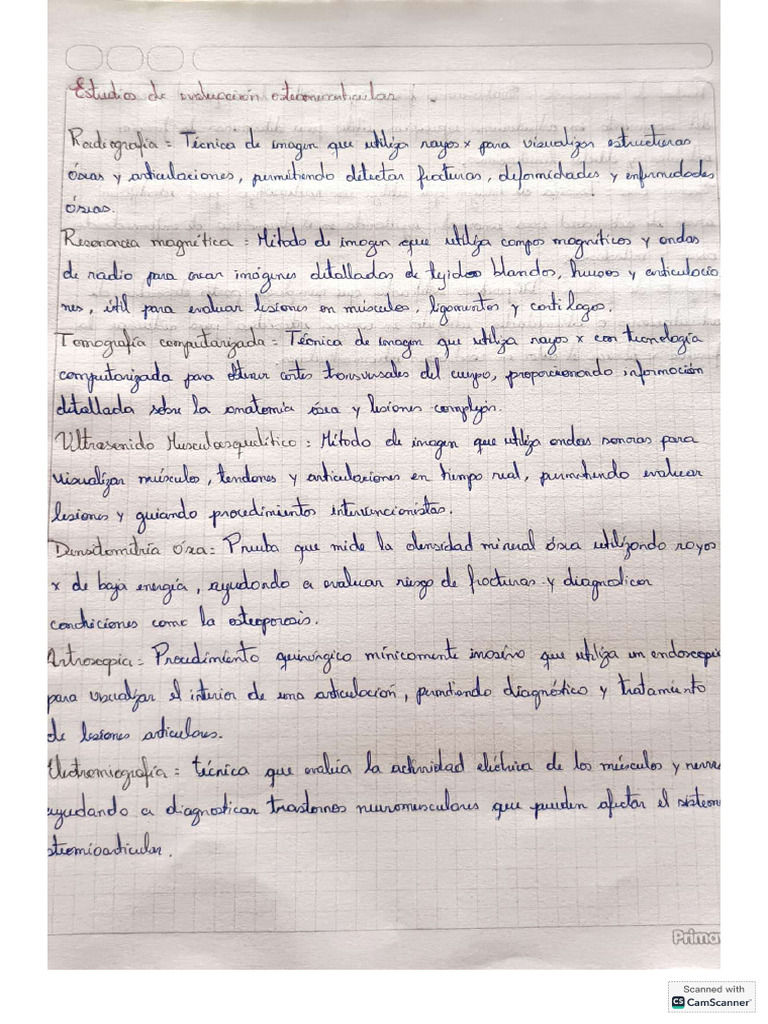 Estudios de evaluación osteomioarticular :.
Radiografía = Técnica de imagen que utiliza rayos x para visualizar estructuras
óseas y articulaciones, permitiendo detectar fracturas, deformidades y enfermedades
óseas.
Resonancia magnética = Método de imagen que utiliza campos magnéticos y ondas
de radio para crear imágenes detalladas de tejidos blandos, huesos y articulacio
nes, útil para evaluar lesiones en músculos, ligamentos y cartílagos.
Tomografía computarizada = Técnica de imagen que utiliza rayos x con tecnología
computarizada para obtener cortes transversales del cuerpo, proporcionando información
detallada sobre la anatomía ósea y lesiones complejas.
Ultrasonido Musculoesquelético : Método de imagen que utiliza ondas sonoras para
visualizar músculos, tendones y articulaciones en tiempo real, permitiendo evaluar
lesiones y guiando procedimientos intervencionistas.
Densitometría ósea = Prueba que mide la densidad mineral ósea utilizando rayos
x de baja energía, ayudando a evaluar riesgo de fracturas y diagnosticar
condiciones como la osteoporosis.
Artroscopia = Procedimiento quirúrgico mínicamente invasivo que utiliza un endoscopi
para visualizar el interior de una articulación, permitiendo diagnóstico y tratamiento
de lesiones articulares.
Electromiografía = técnica que evalúa la actividad eléctrica de los músculos y nervi
ayudando a diagnosticar trastornos neuromusculares que pueden afectar el sistem
steomioarticular.
Prima
Scanned with
CS CamScanner